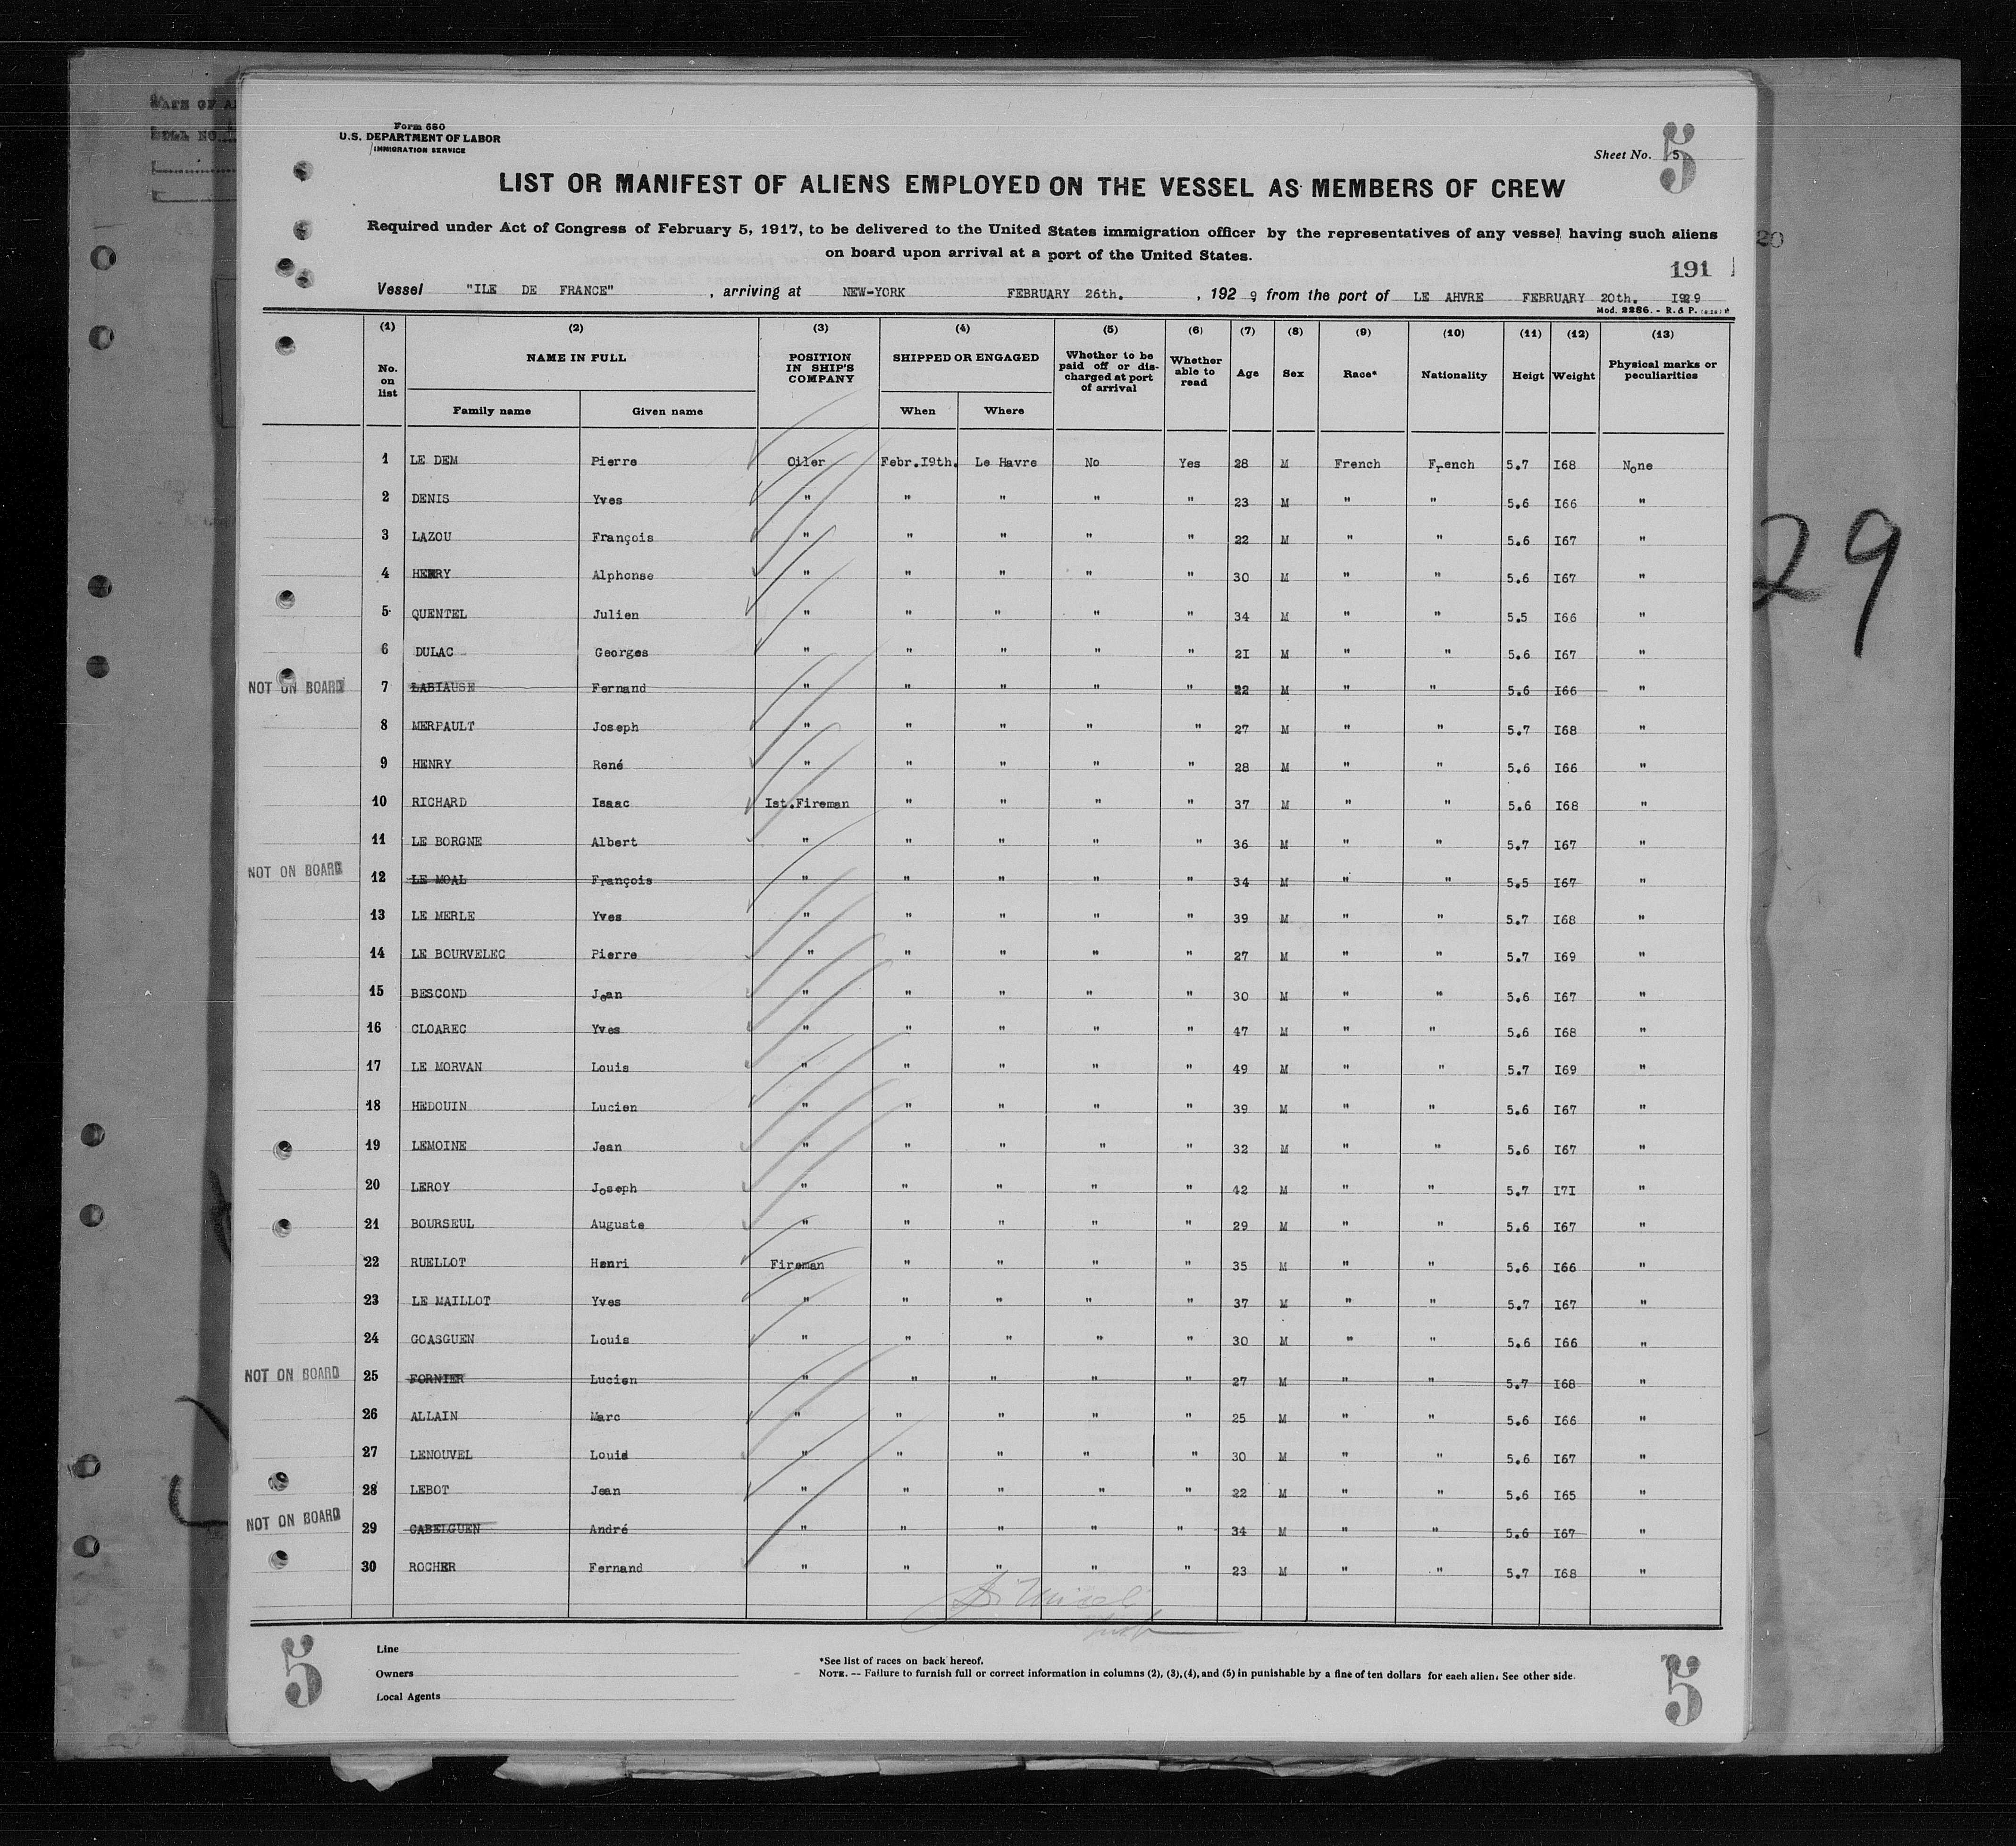 Form 680
U.S. DEPARTMENT OF LABOR
IMMIGRATION SERVICE
Sheet No. 5
5
LIST OR MANIFEST OF ALIENS EMPLOYED ON THE VESSEL AS MEMBERS OF CREW
Required under Act of Congress of February 5, 1917, to be delivered to the United States immigration officer by the representatives of any vessel having such aliens
on board upon arrival at a port of the United States.
191
Vessel "ILE DE FRANCE" , arriving at NEW-YORK FEBRUARY 26th. , 192 9 from the port of LE AHVRE FEBRUARY 20th. I929
Mod. 2286. - R. & P.
(1) (2) (3) (4) (5) (6) (7) (8) (9) (10) (11) (12) (13)
No. on list NAME IN FULL Family name Given name POSITION IN SHIP'S COMPANY SHIPPED OR ENGAGED When Where Whether to be paid off or discharged at port of arrival Whether able to read Age Sex Race* Nationality Heigt Weight Physical marks or peculiarities
1 LE DEM Pierre Oiler Febr.I9th. Le Havre No Yes 28 M French French 5.7 I68 None
2 DENIS Yves " " " " " 23 M " " 5.6 I66 "
3 LAZOU François " " " " " 22 M " " 5.6 I67 "
4 HENRY Alphonse " " " " " 30 M " " 5.6 I67 "
5 QUENTEL Julien " " " " " 34 M " " 5.5 I66 "
6 DULAC Georges " " " " " 2I M " " 5.6 I67 "
NOT ON BOARD 7 LABIAUSE Fernand " " " " " 22 M " " 5.6 I66 "
8 MERPAULT Joseph " " " " " 27 M " " 5.7 I68 "
9 HENRY René " " " " " 28 M " " 5.6 I66 "
10 RICHARD Isaac Ist.Fireman " " " " 37 M " " 5.6 I68 "
11 LE BORGNE Albert " " " " " 36 M " " 5.7 I67 "
NOT ON BOARD 12 LE MOAL François " " " " " 34 M " " 5.5 I67 "
13 LE MERLE Yves " " " " " 39 M " " 5.7 I68 "
14 LE BOURVELEC Pierre " " " " " 27 M " " 5.7 I69 "
15 BESCOND Jean " " " " " 30 M " " 5.6 I67 "
16 CLOAREC Yves " " " " " 47 M " " 5.6 I68 "
17 LE MORVAN Louis " " " " " 49 M " " 5.7 I69 "
18 HEDOUIN Lucien " " " " " 39 M " " 5.6 I67 "
19 LEMOINE Jean " " " " " 32 M " " 5.6 I67 "
20 LEROY Joseph " " " " " 42 M " " 5.7 I7I "
21 BOURSEUL Auguste " " " " " 29 M " " 5.6 I67 "
22 RUELLOT Henri Fireman " " " " 35 M " " 5.6 I66 "
23 LE MAILLOT Yves " " " " " 37 M " " 5.7 I67 "
24 GOASGUEN Louis " " " " " 30 M " " 5.6 I66 "
NOT ON BOARD 25 FORNIER Lucien " " " " " 27 M " " 5.7 I68 "
26 ALLAIN Marc " " " " " 25 M " " 5.6 I66 "
27 LENOUVEL Louis " " " " " 30 M " " 5.6 I67 "
28 LEBOT Jean " " " " " 22 M " " 5.6 I65 "
NOT ON BOARD 29 CABELGUEN André " " " " " 34 M " " 5.6 I67 "
30 ROCHER Fernand " " " " " 23 M " " 5.7 I68 "
Line
Owners
Local Agents
*See list of races on back hereof.
NOTE. -- Failure to furnish full or correct information in columns (2), (3), (4), and (5) in punishable by a fine of ten dollars for each alien. See other side.
5
5
29
20